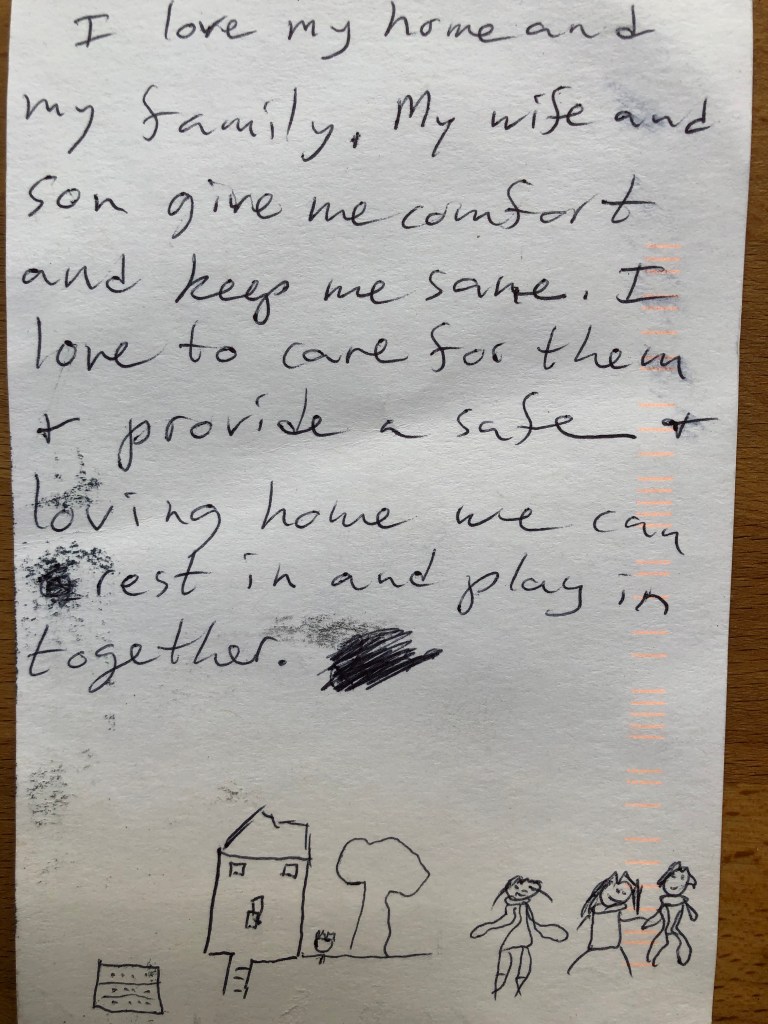 I love my home and
my family. My wife and
son give me comfort
and keep me sane. I
love to care for them
+ provide a safe +
loving home we can
rest in and play in
together.